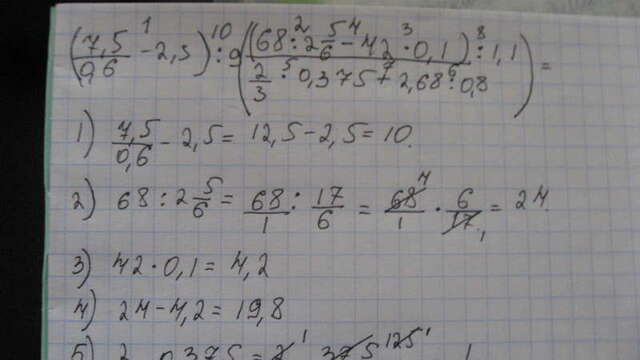 (7,5/0,6 - 2,5) : 9((68 : 2 5/6 - 42 · 0,1) : 1,1 / 2/3 : 0,375 + 2,68 : 0,8) =
1) 7,5/0,6 - 2,5 = 12,5 - 2,5 = 10.
2) 68 : 2 5/6 = 68/1 : 17/6 = 68/1 · 6/17 = 24.
3) 42 · 0,1 = 4,2
4) 24 - 4,2 = 19,8